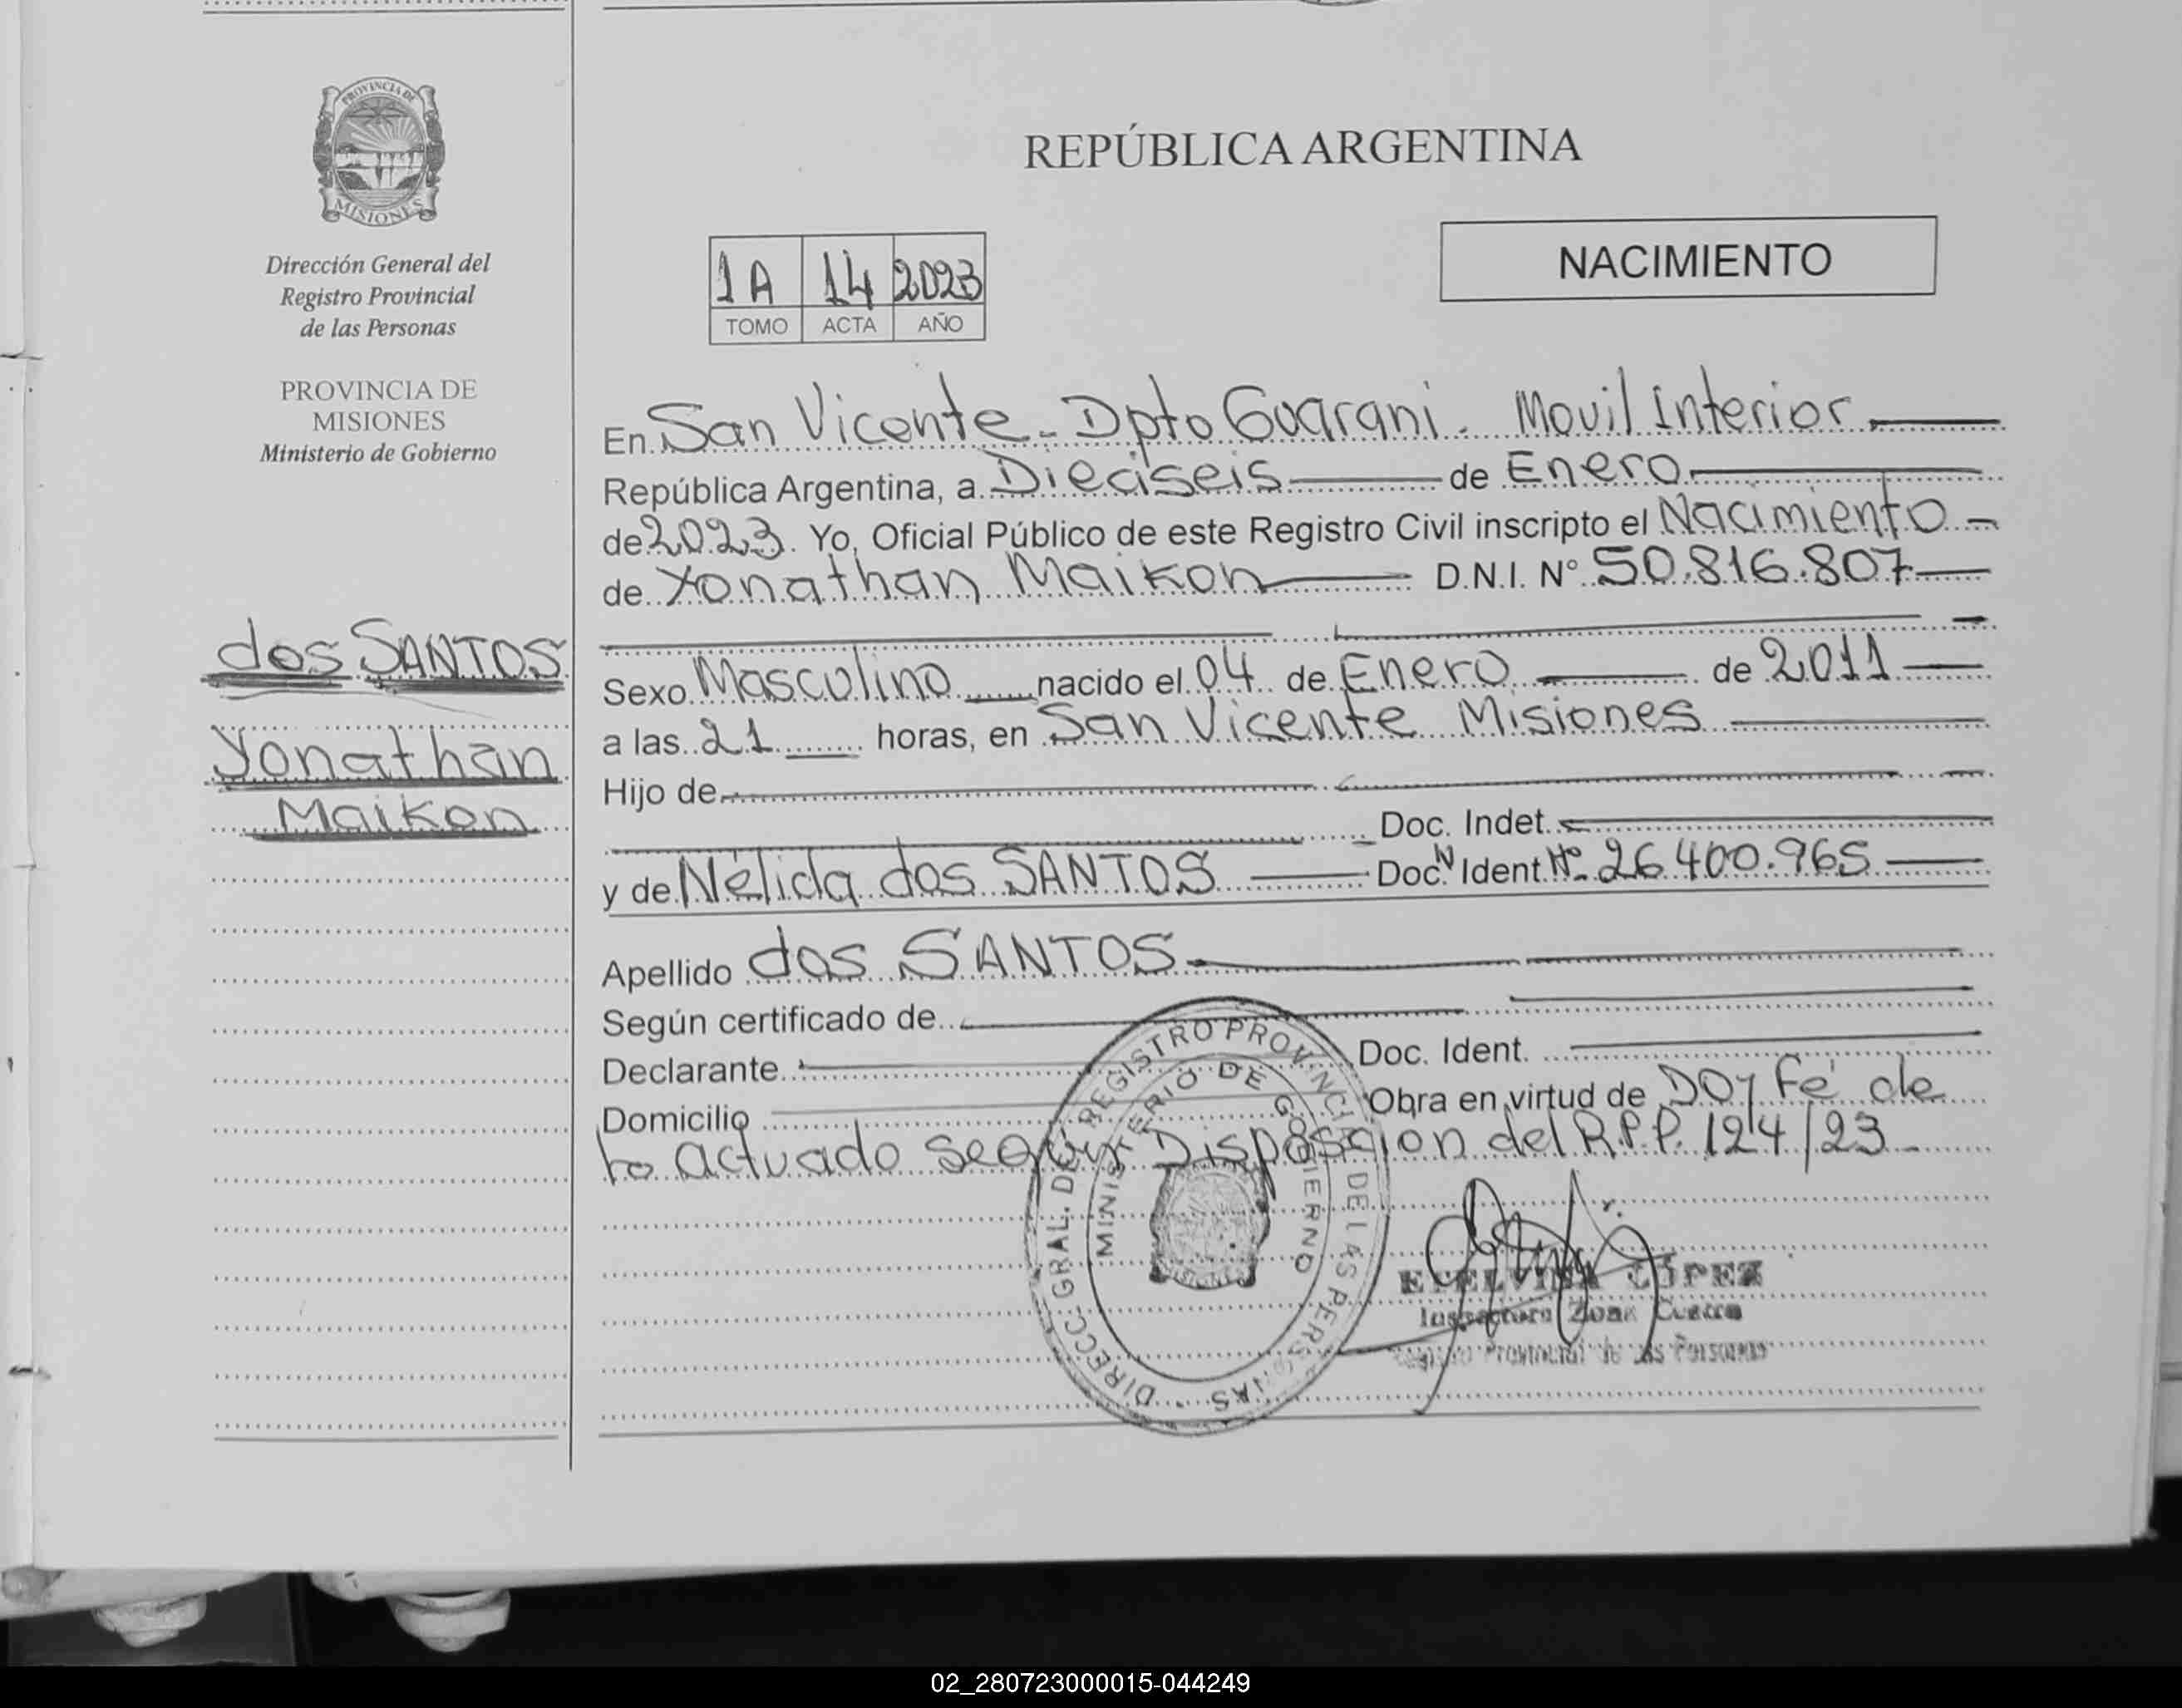 PROVINCIA DE
MISIONES
Dirección General del
Registro Provincial
de las Personas
PROVINCIA DE
MISIONES
Ministerio de Gobierno
dos SANTOS
Yonathan
Maikon
REPÚBLICA ARGENTINA
1A 14 2023
TOMO ACTA AÑO
NACIMIENTO
En San Vicente - Dpto Guarani. Movil Interior
República Argentina, a Dieciseis de Enero
de 2023. Yo, Oficial Público de este Registro Civil inscripto el Nacimiento
de Yonathan Maikon D.N.I. N° 50.816.807
Sexo Masculino nacido el 04 de Enero de 2011
a las 21 horas, en San Vicente Misiones
Hijo de
Doc. Indet.
y de Nélida dos SANTOS Doc. N Ident Nº 26.400.965
Apellido dos SANTOS
Según certificado de
Declarante Doc. Ident.
Domicilio Obra en virtud de Doy Fé de
lo actuado según Disposcion del R.P.P. 124/23
DIRECC. GRAL. DE REGISTRO PROVINCIAL DE LAS PERSONAS
MINISTERIO DE GOBIERNO
LÓPEZ
Inspectora Zona Centro
Registro Provincial de las Personas
02_280723000015-044249